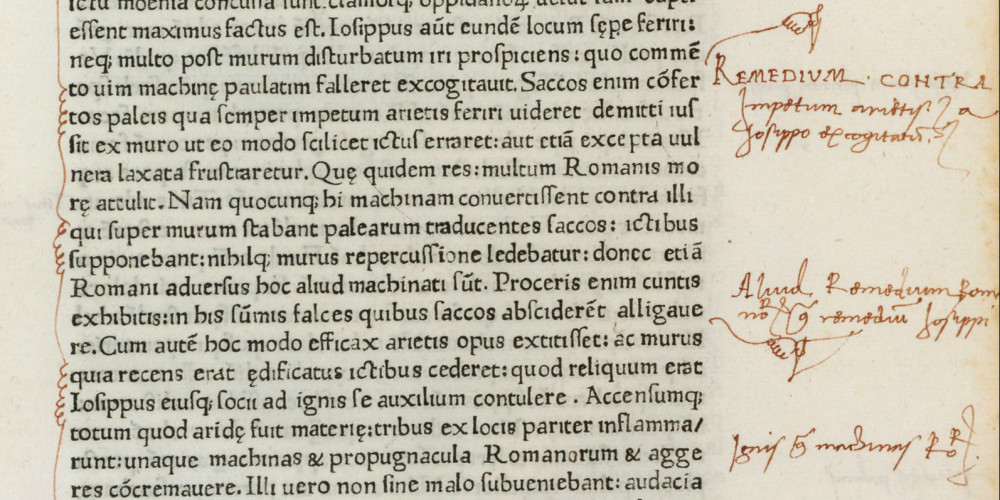 ictu moenia concussa sunt: clamorq; oppidanoꝝ uelut iam capti
essent maximus factus est. Iosippus aūt eundē locum sępe feriri:
neq; multo post murum disturbatum iri prospiciens: quo commē
to uim machinę paulatim falleret excogitauit. Saccos enim cōfer
tos paleis qua semper impetum arietis feriri uideret demitti ius
sit ex muro ut eo modo scilicet ictus erraret: aut etiā excepta uul
nera laxata frustraretur. Quę quidem res: multum Romanis mo
rę attulit. Nam quocunq; hi machinam conuertissent contra illi
qui super murum stabant palearum traducentes saccos: ictibus
supponebant: nihilq; murus repercussione ledebatur: donec etiā
Romani aduersus hoc aliud machinati sūt. Proceris enim cuntis
exhibitis: in his sūmis falces quibus saccos absciderēt alligaue
re. Cum autē hoc modo efficax arietis opus extitisset: ac murus
quia recens erat ędificatus ictibus cederet: quod reliquum erat
Iosippus eiusq; socii ad ignis se auxilium contulere . Accensumq;
totum quod aridę fuit materię: tribus ex locis pariter inflamma/
runt: unaque machinas & propugnacula Romanorum & agge
res cōcremauere. Illi uero non sine malo subueniebant: audacia
REMEDIVM . CONTRA
Impetum arietis a
Iosippo excogitatū.
Aliud Remedium Roma
noꝝ remediū Iosippi
Ignis machinas